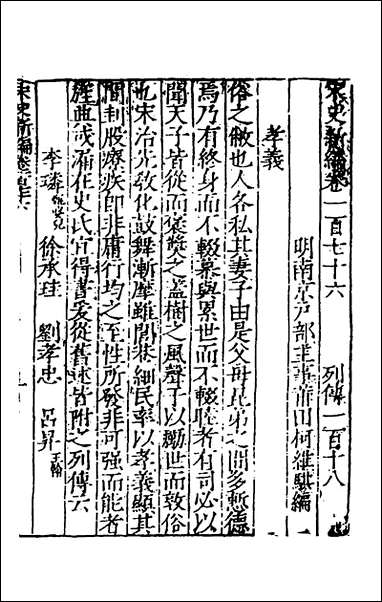 宋史新編卷一百七十六 列傳一百十八
明南京戶部主事莆田柯維騏編
孝義
俗之敝也人各私其妻子由是父母兄弟之間多慙德
焉乃有終身而不輟慕與累世而不輟聚者有司必以
聞天子皆從而褒奬之蓋樹之風聲子以勵世而敦俗
也宋治光敎化鼓舞漸摩雖閭巷細民率以孝義顯其
間刲股療疾即非庸行均之至性所發非可强而能者
經典或有在史氏宜得書爰從舊述皆附之列傳云
李璘甄婆兒 徐承珪 劉孝忠 呂昇王翰
宋史新編卷一百七十六